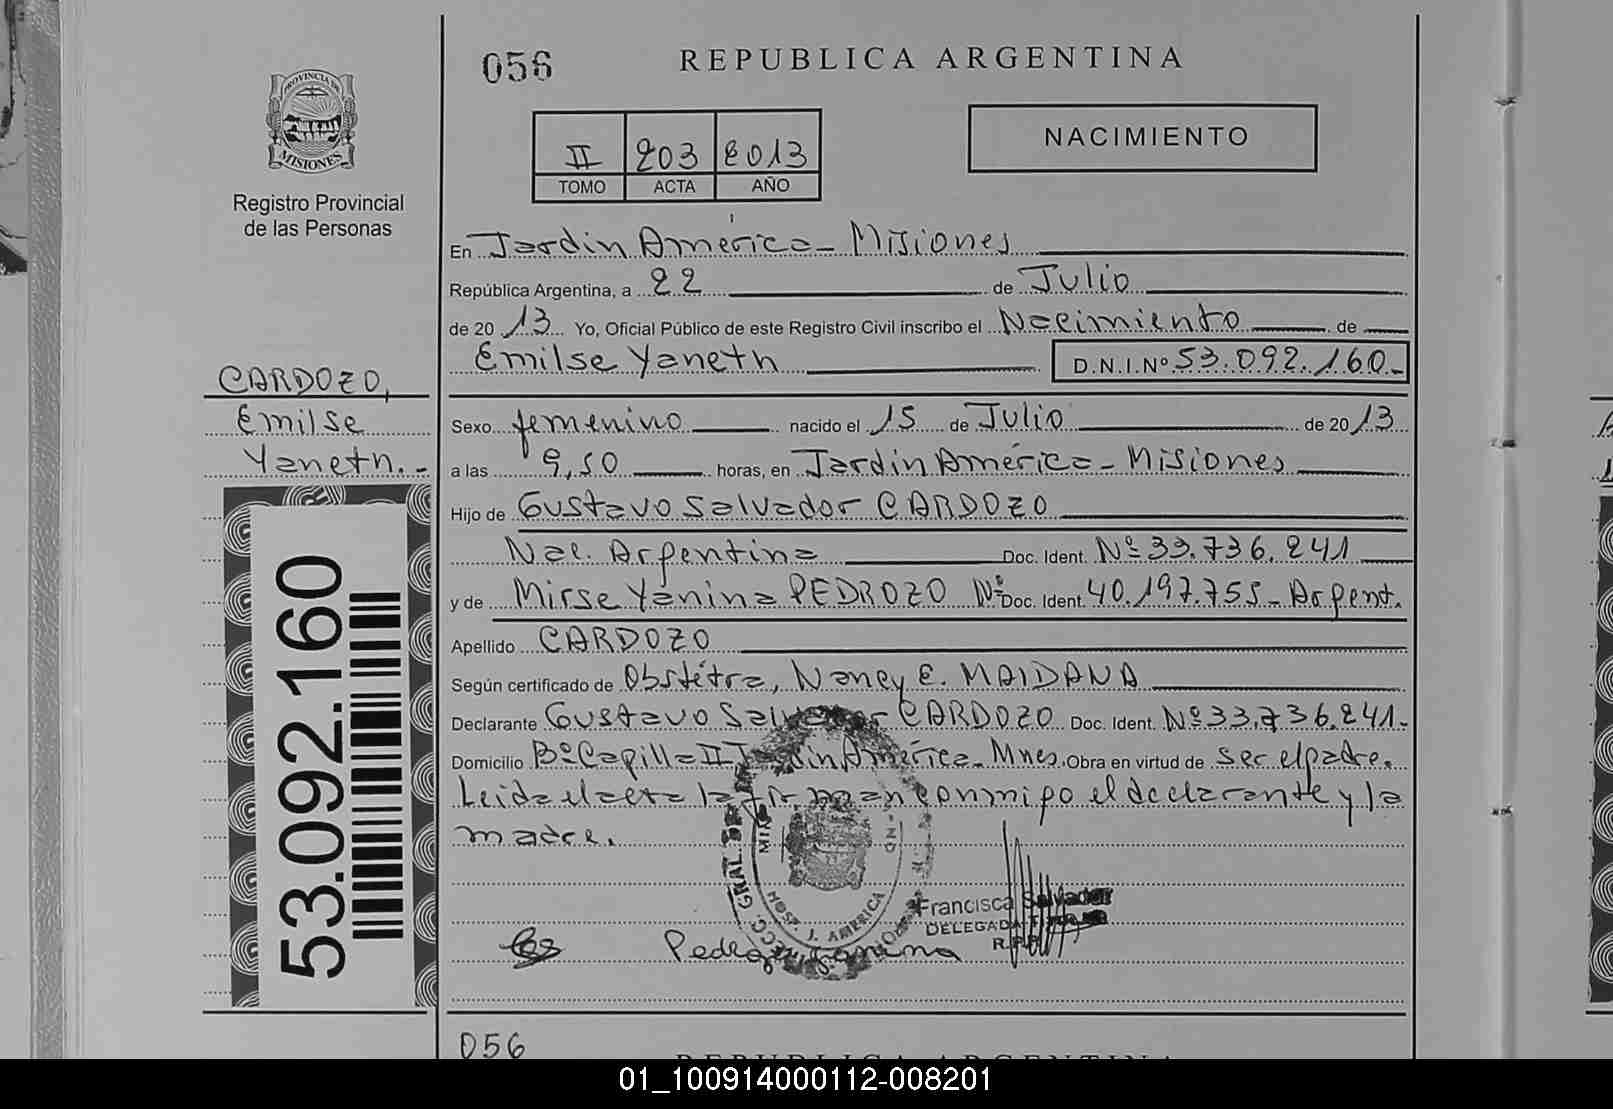 056
REPUBLICA ARGENTINA
PROVINCIA DE
MISIONES
Registro Provincial
de las Personas
II 203 2013
TOMO ACTA AÑO
NACIMIENTO
En Jardin América - Misiones
República Argentina, a 22 de Julio
de 2013 Yo, Oficial Público de este Registro Civil inscribo el Nacimiento de
Emilse Yaneth D.N.I.Nº 53.092.160.-
CARDOZO,
Emilse
Yaneth.-
Sexo femenino nacido el 15 de Julio de 2013
a las 9,50 horas, en Jardin América - Misiones
Hijo de Gustavo Salvador CARDOZO
Nac. Argentina Doc. Ident. Nº 33.736.241
y de Mirse Yanina PEDROZO Nº Doc. Ident. 40.197.755 - Argent.
Apellido CARDOZO
Según certificado de Obstétra, Nancy E. MAIDANA
Declarante Gustavo Salvador CARDOZO Doc. Ident. Nº 33.736.241.-
Domicilio Bº Capilla II, Jardin América - Mnes. Obra en virtud de ser el padre.
Leida el acta la firman conmigo el declarante y la
madre.
53.092.160
HOSP. J. AMERICA
Francisca Salvador
DELEGADA
R.P.P.
Pedrozo Yanina
056
REPUBLICA ARGENTINA
01_100914000112-008201